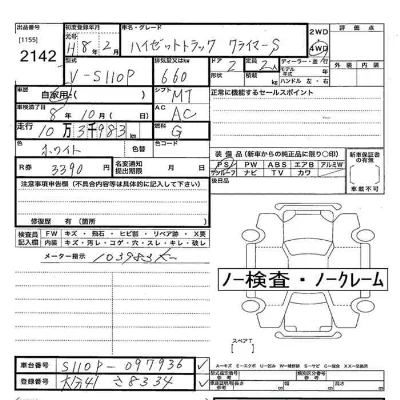 出品番号 初度登録年月 車名・グレード 評価点
[1155] 元号 2WD
2142 H 8年 2月 ハイゼットトラック クライマーS 4WD
型式 排気量又は ドア 定員 ディーラー・並行
V-S110P 660 2 2人 モデル 年式
積載 kg ハンドル 左・右 外装 内装
車歴 自家用 シフト MT 正常に機能するセールスポイント
車検満了日 AC
8年 10月 日 AC
走行 燃料
10万3千983 G
色 色替 色コード
ホワイト
装備品(新車からの純正品に限り○印) 新車保証書の有無
R券 3390円 名変通知提出期限 PS PW ABS エアB アルミW
サンルーフ ナビ TV カワ
車載不可
注意事項申告欄(不具合内容等は具体的に記入して下さい) 後日品
修復歴 有(箇所
検査員記入欄 FW キズ・飛石・ヒビ割・リペア跡・X要
内装 キズ・汚レ・コゲ・穴・スレ・キレ・破レ
メーター指示 103983K
ノー検査・ノークレーム
スペアT
車台番号 S110P-097936
登録番号 大分41 さ8334